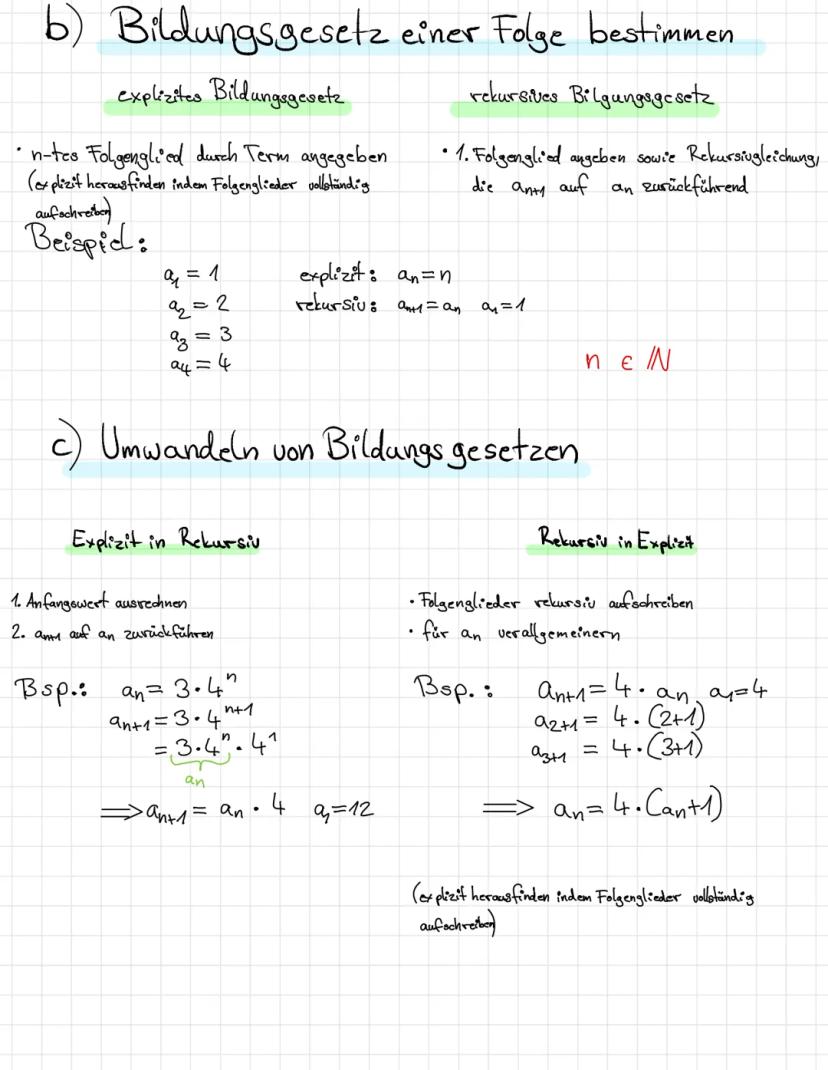 b) Bildungsgesetz einer Folge bestimmen
explizites Bildungsgesetz
rekursives Bilgungsgesetz
· n-tes Folgenglied durch Term angegeben
(explizit herausfinden indem Folgenglieder vollständig
aufschreiben)
· 1. Folgenglied angeben sowie Rekursivgleichung,
die an+1 auf an zurückführend
Beispiel:
a₁ = 1
a₂ = 2
a₃ = 3
a₄ = 4
explizit: an = n
rekursiv: an+1 = an a₁ = 1
n ∈ ℕ
c) Umwandeln von Bildungsgesetzen
Explizit in Rekursiv
1. Anfangswert ausrechnen
2. an+1 auf an zurückführen
Bsp.: an = 3·4ⁿ
an+1 = 3·4ⁿ⁺¹
= 3·4ⁿ·4¹
an
⟹ an+1 = an · 4 a₁=12
Rekursiv in Explizit
· Folgenglieder rekursiv aufschreiben
· für an verallgemeinern
Bsp.: an+1 = 4· an, a₁=4
a2+1 = 4·(2+1)
a3+1 = 4·(3+1)
⟹ an = 4·(an+1)
(explizit herausfinden indem Folgenglieder vollständig
aufschreiben)